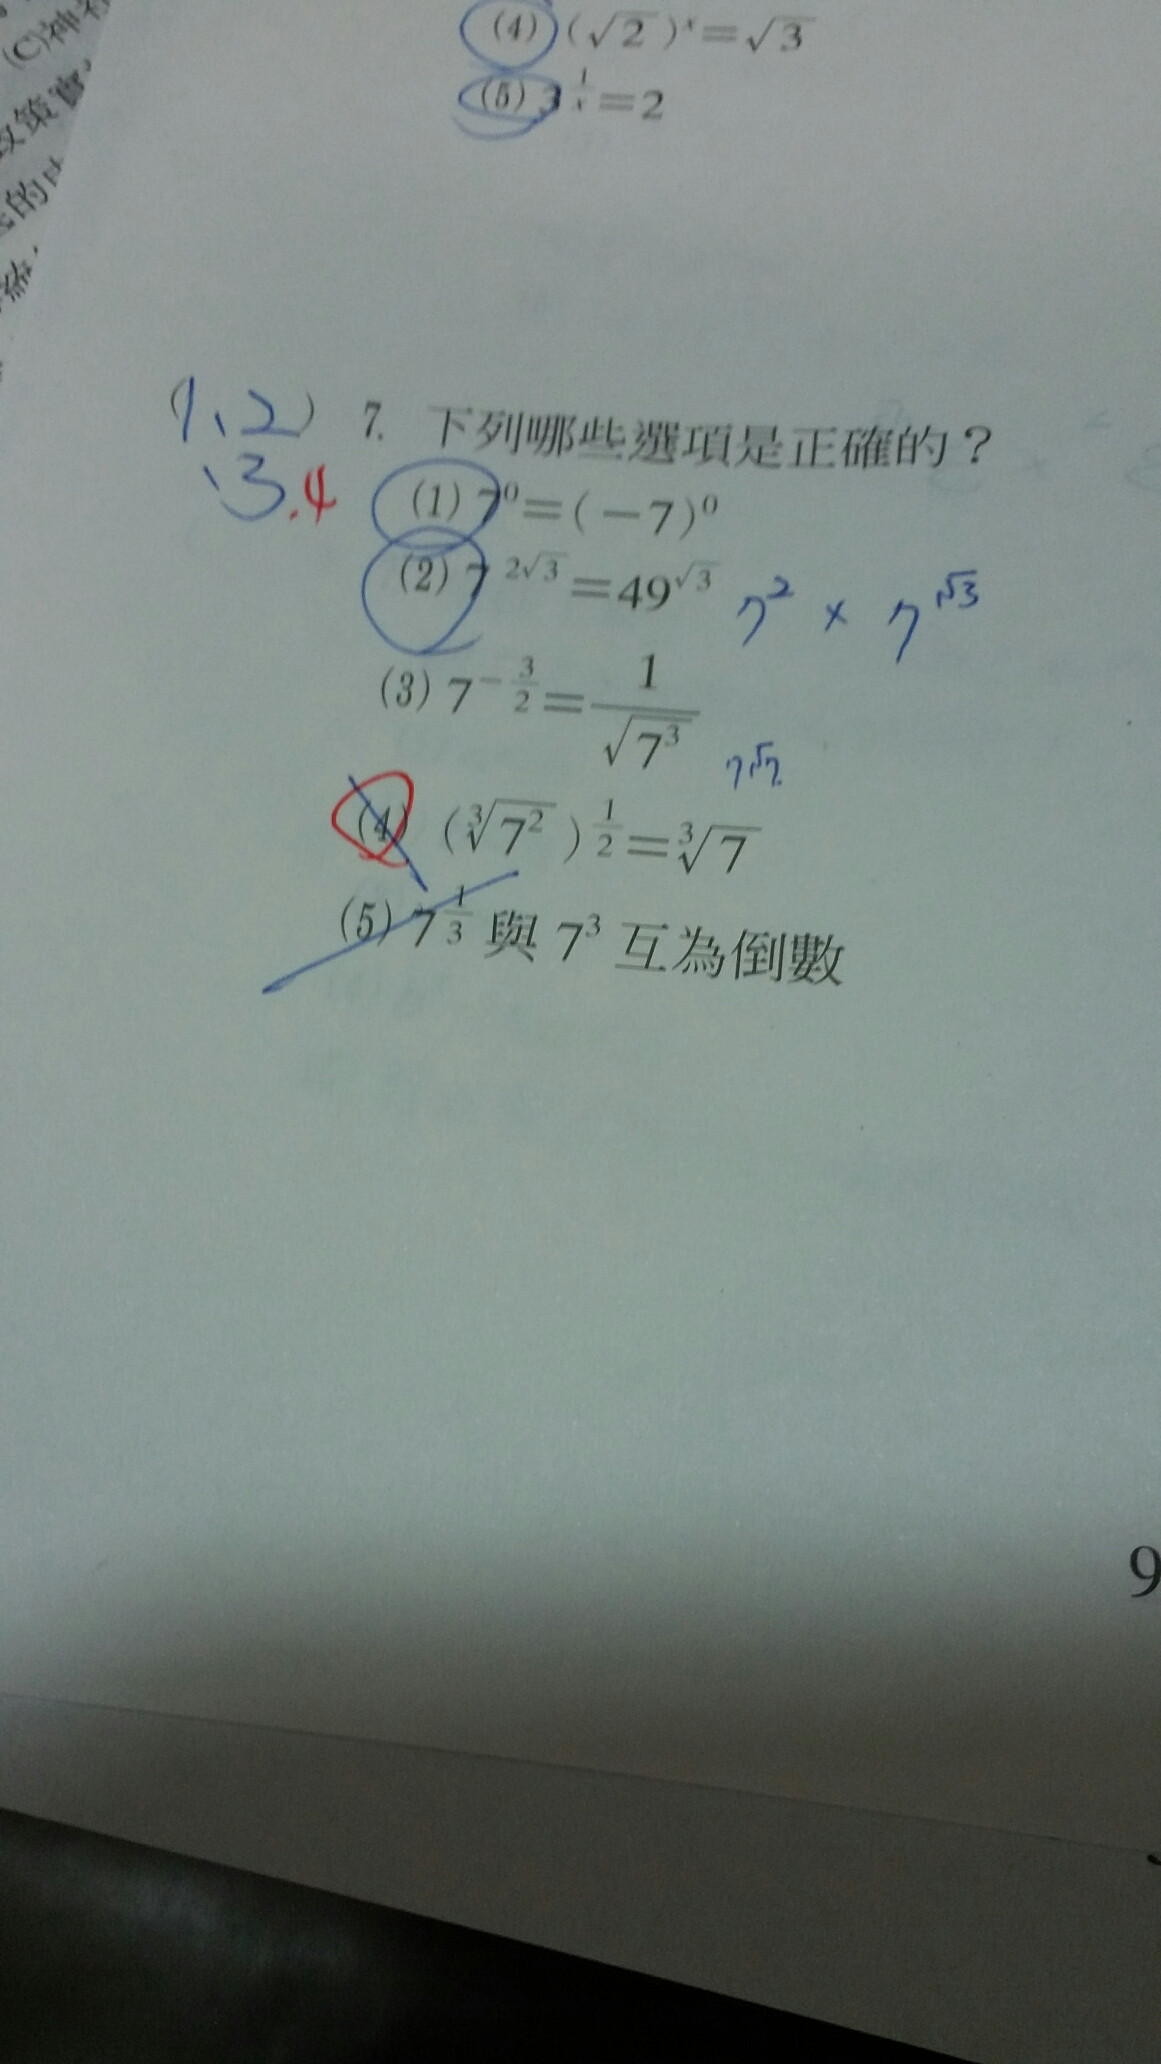 (C)神社
政策實,
的
(4) (√2)^x=√3
(5) 3^(1/x)=2
(1、2) 7. 下列哪些選項是正確的?
、3.4
(1) 7^0=(-7)^0
(2) 7^(2√3)=49^(√3) 7^2 × 7^(√3)
(3) 7^(-3/2)=1/√(7^3)
7√7
(4) (∛(7^2))^(1/2)=∛7
(5) 7^(1/3) 與 7^3 互為倒數
9